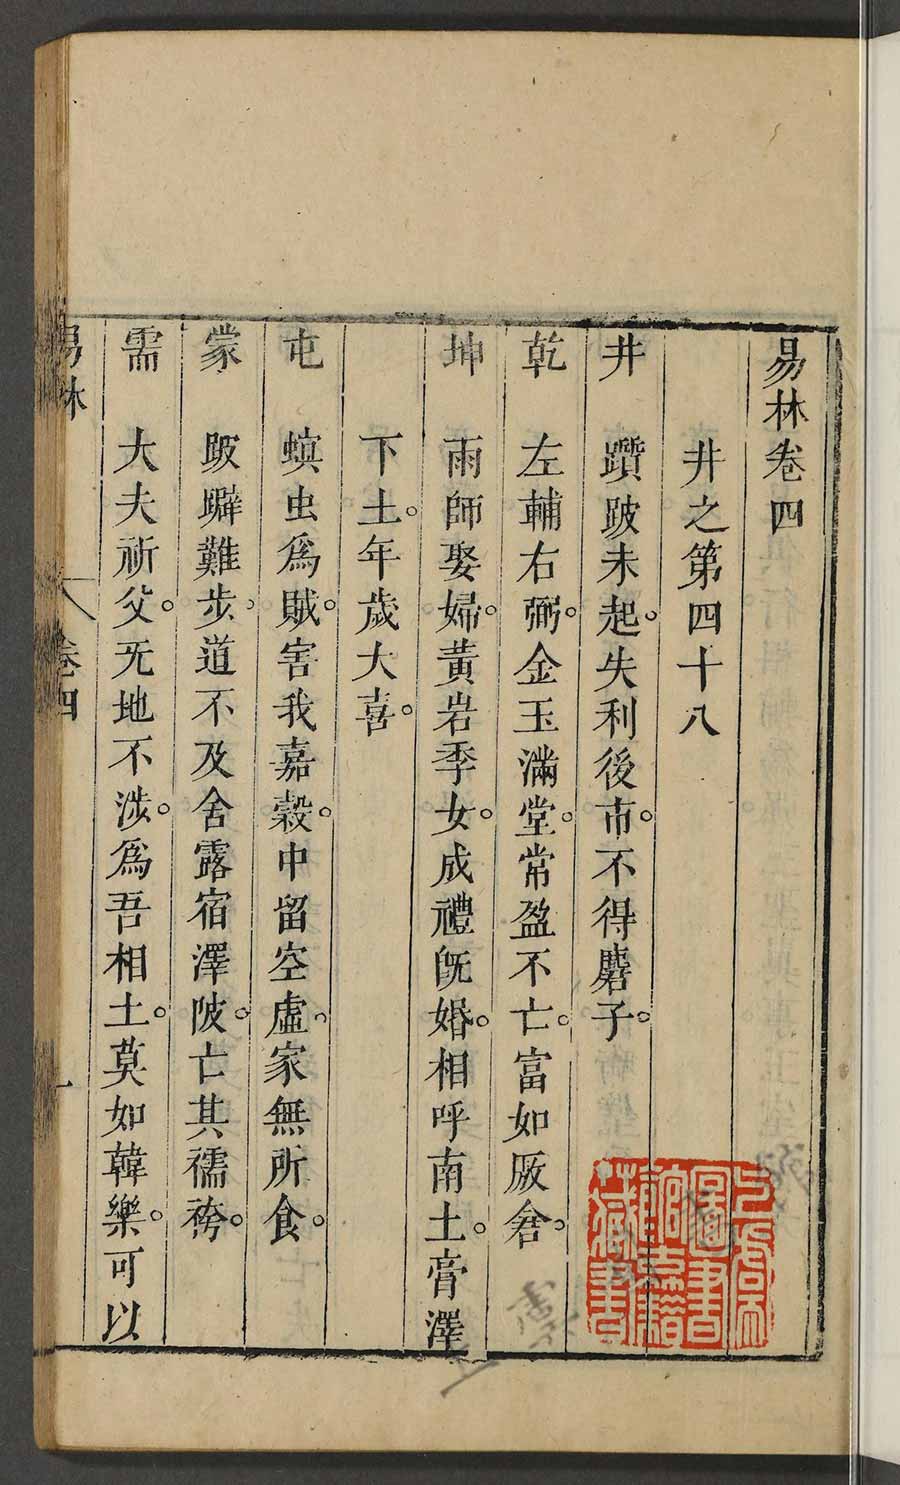 易林卷四
井之第四十八
井 躓跛未起。失利後市。不得麏子。
乾 左輔右弼。金玉滿堂。常盈不亡。富如厫倉。
坤 雨師娶婦。黃岩季女。成禮旣婚。相呼南土。膏澤
下土。年歲大喜。
屯 螟虫爲賊。害我嘉穀。中留空虛。家無所食。
蒙 跛躃難步。道不及舍。露宿澤陂。亡其襦袴。
需 大夫祈父。无地不涉。爲吾相土。莫如韓樂。可以
易林 卷四 一